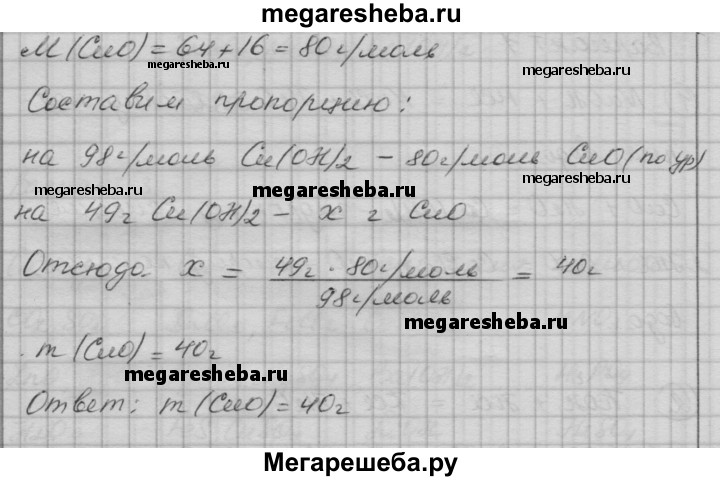 megaresheba.ru
M(CuO) = 64 + 16 = 80 г/моль
megaresheba.ru
megaresheba.ru
Составим пропорцию:
на 98 г/моль Cu(OH)2 – 80 г/моль CuO (по ур)
megaresheba.ru
megaresheba.ru
на 49 г Cu(OH)2 – x г CuO
Отсюда x = 49г · 80г/моль / 98г/моль = 40г
megaresheba.ru
m(CuO) = 40г
megaresheba.ru
Ответ: m(CuO) = 40г
Мегарешеба.ру